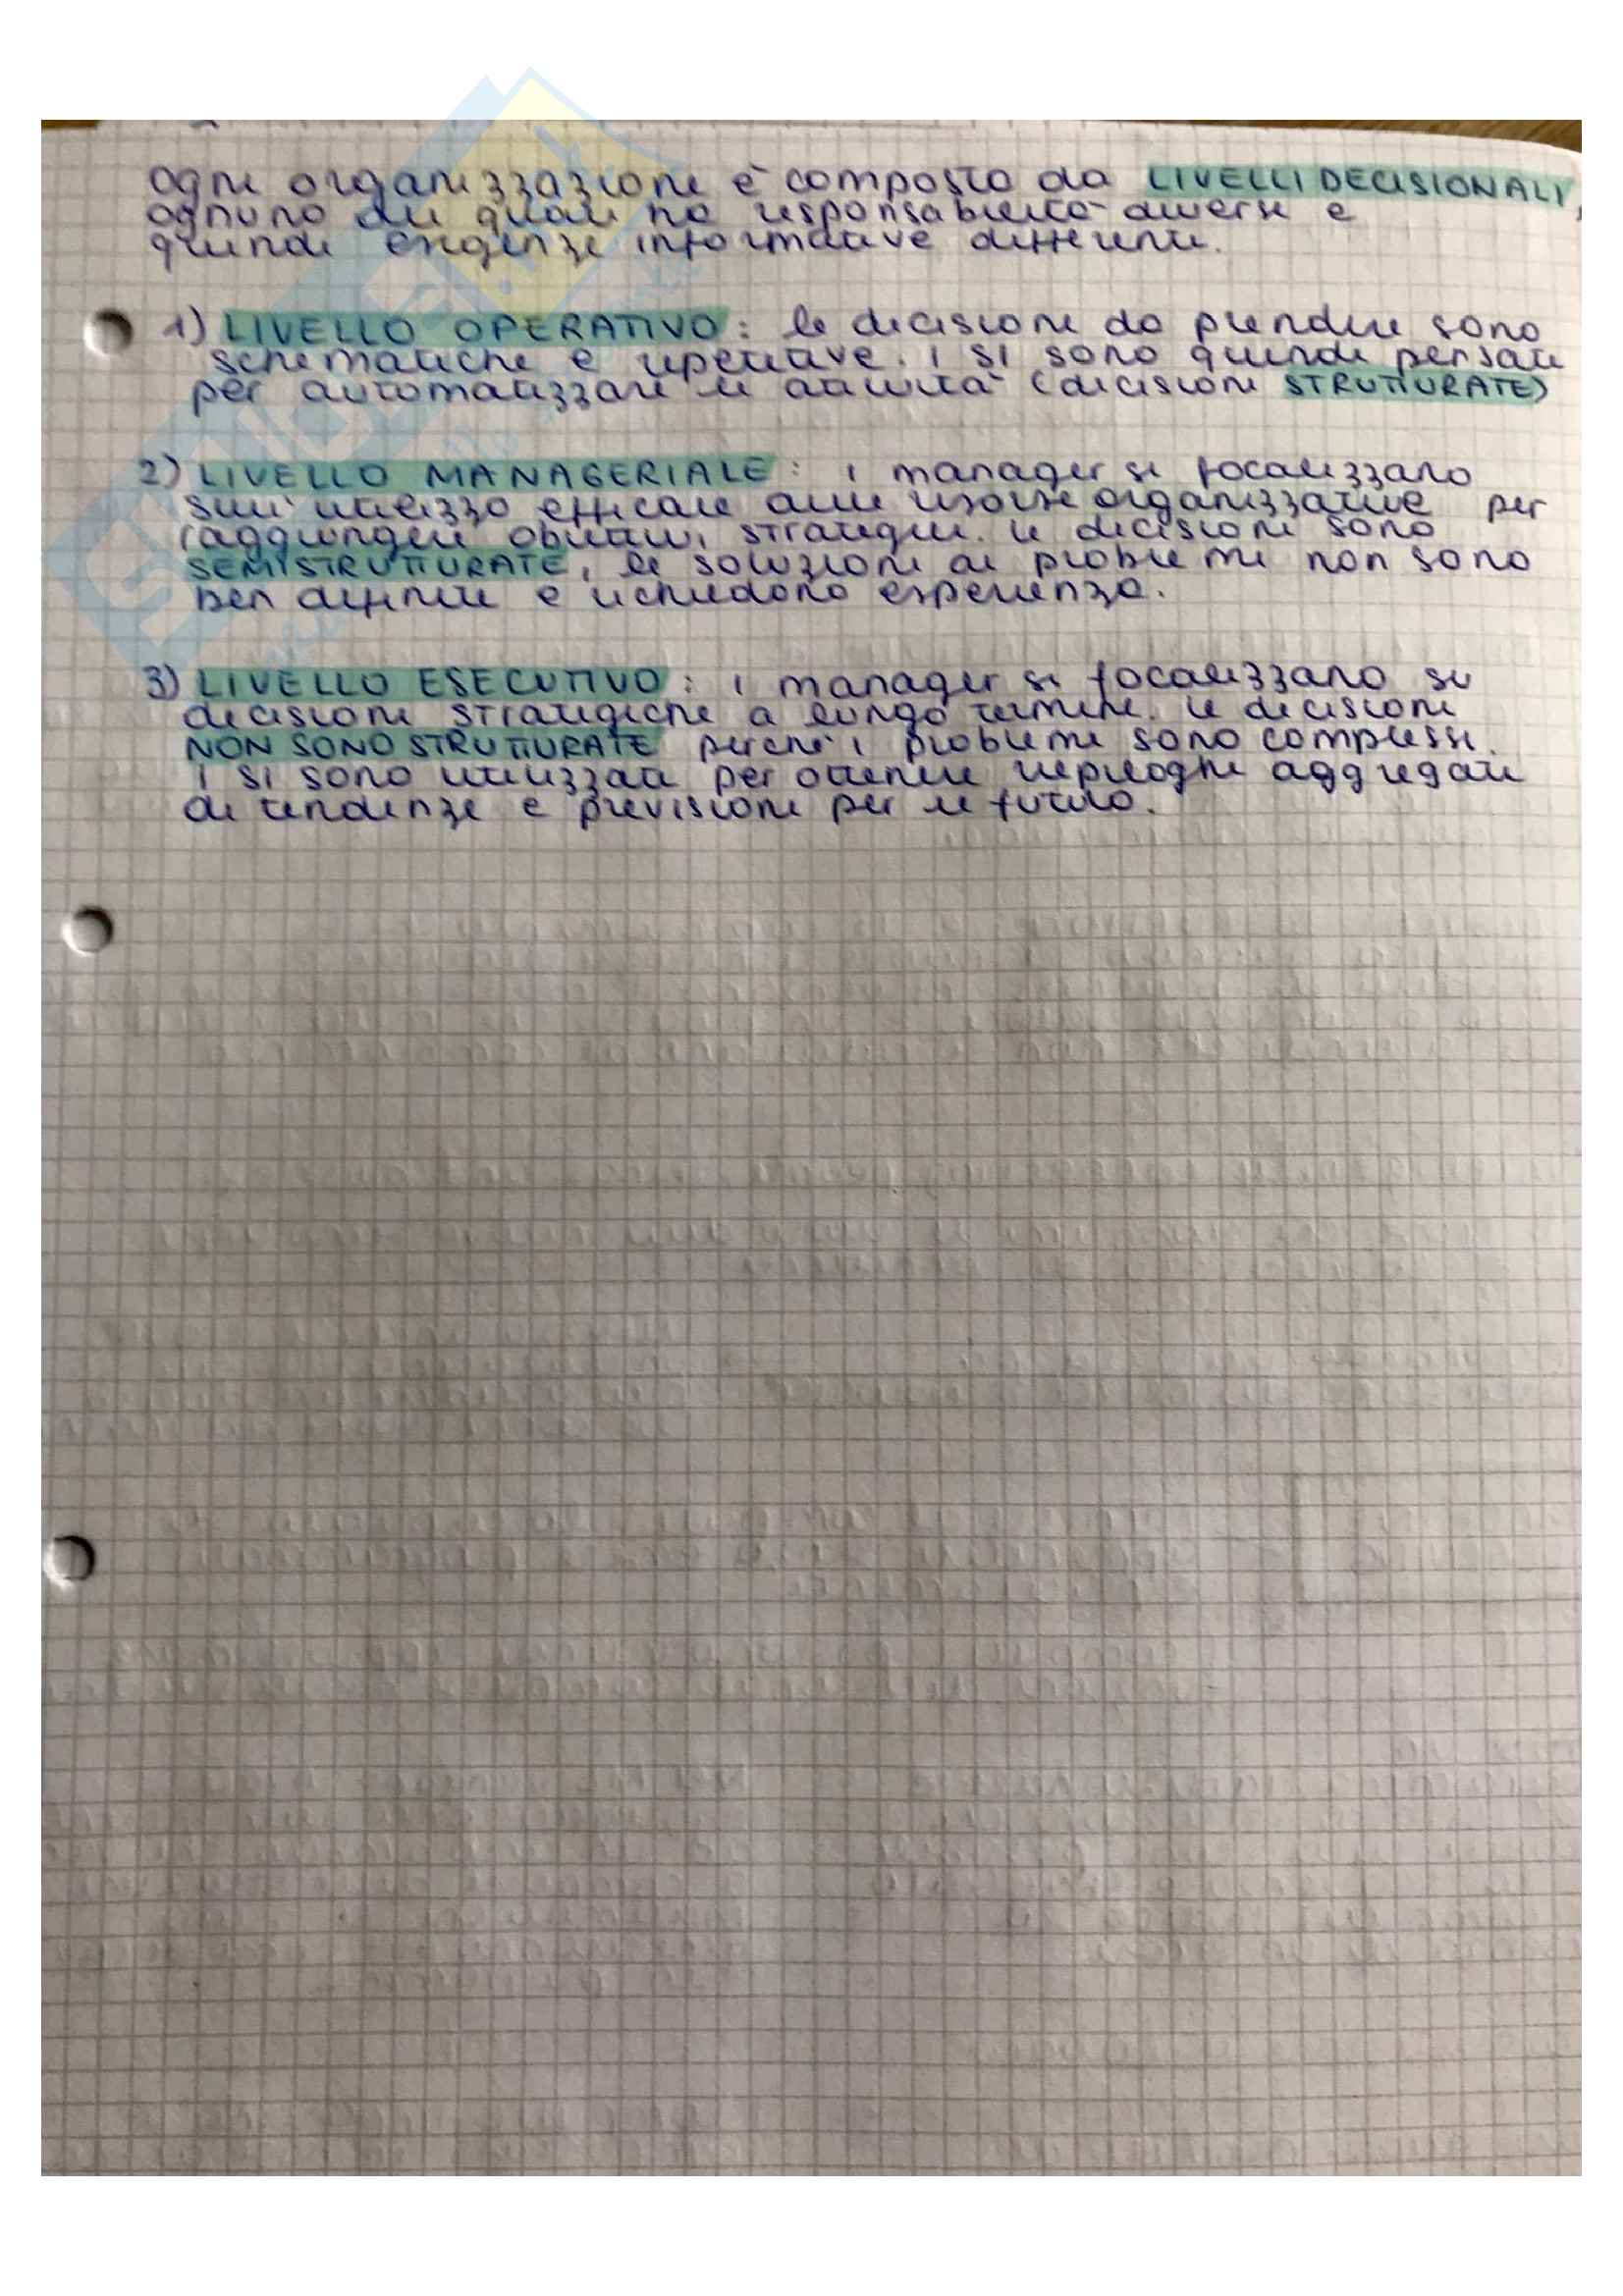 Ogni organizzazione è composta da LIVELLI DECISIONALI,
ognuno dei quali ha responsabilità diverse e
quindi esigenze informative differenti.
1) LIVELLO OPERATIVO: le decisioni da prendere sono
schematiche e ripetitive. I SI sono quindi pensati
per automatizzare le attività (decisioni STRUTTURATE)
2) LIVELLO MANAGERIALE: i manager si focalizzano
sull'utilizzo efficace delle risorse organizzative per
raggiungere obiettivi strategici. Le decisioni sono
SEMISTRUTTURATE, le soluzioni ai problemi non sono
ben definite e richiedono esperienza.
3) LIVELLO ESECUTIVO: i manager si focalizzano su
decisioni strategiche a lungo termine. Le decisioni
NON SONO STRUTTURATE perché i problemi sono complessi.
I SI sono utilizzati per ottenere riepiloghi aggregati
di tendenze e previsioni per il futuro.